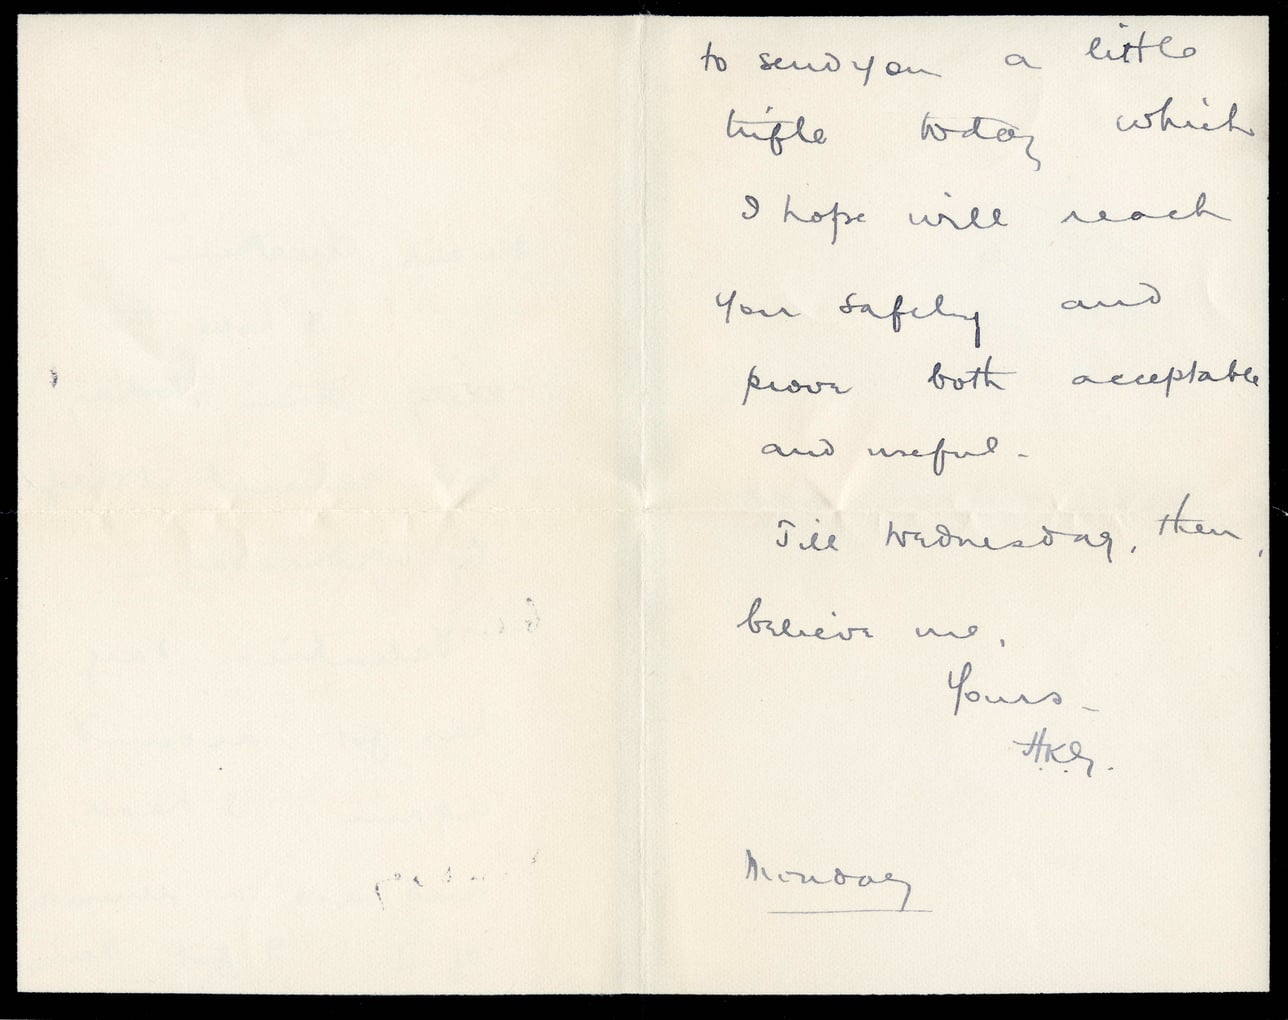 to send you a little
trifle today which
I hope will reach
you safely and
prove both acceptable
and useful -
Till Wednesday, then,
believe me,
Yours -
H.K.G.
Monday